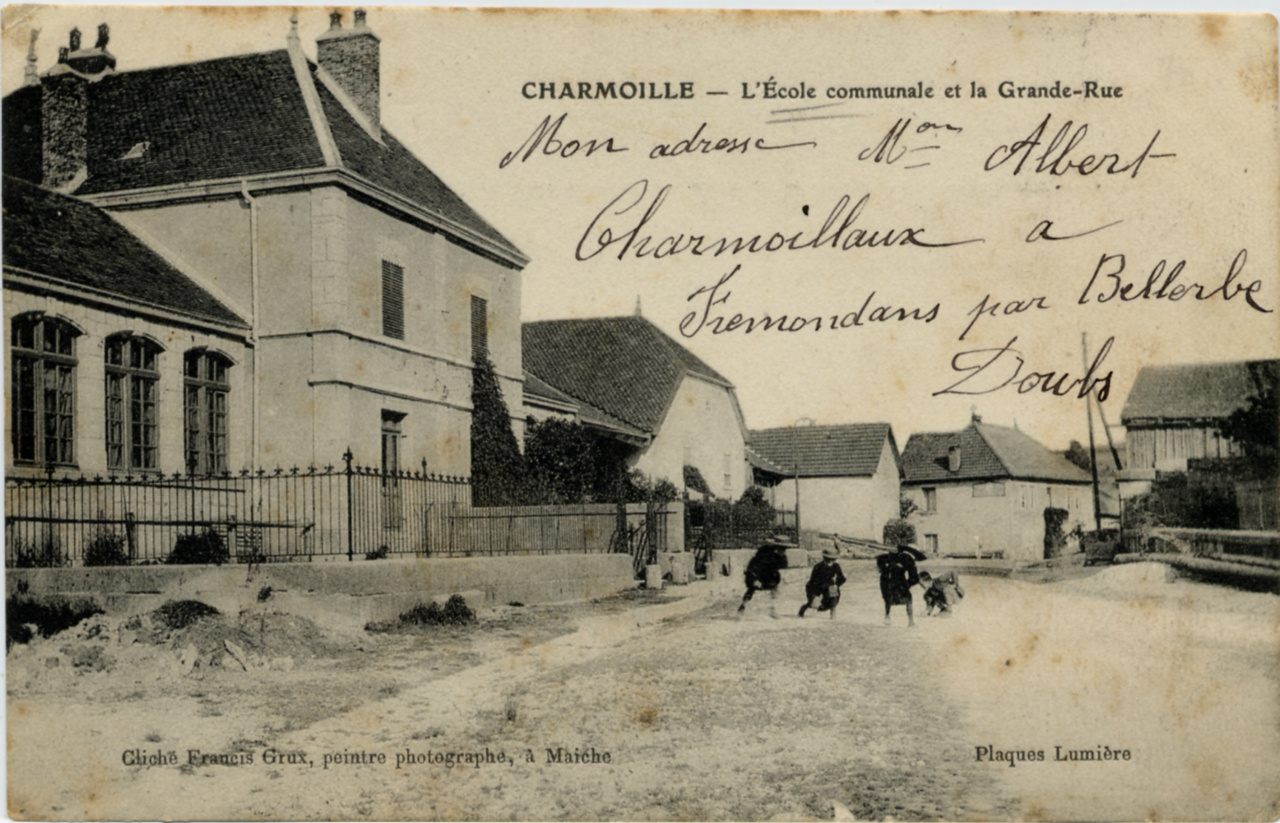 CHARMOILLE — L'École communale et la Grande-Rue
Mon adresse Mon Albert
Charmoillaux a
Fremondans par Bellerbe
Doubs
Cliché Francis Grux, peintre photographe, à Maiche
Plaques Lumière